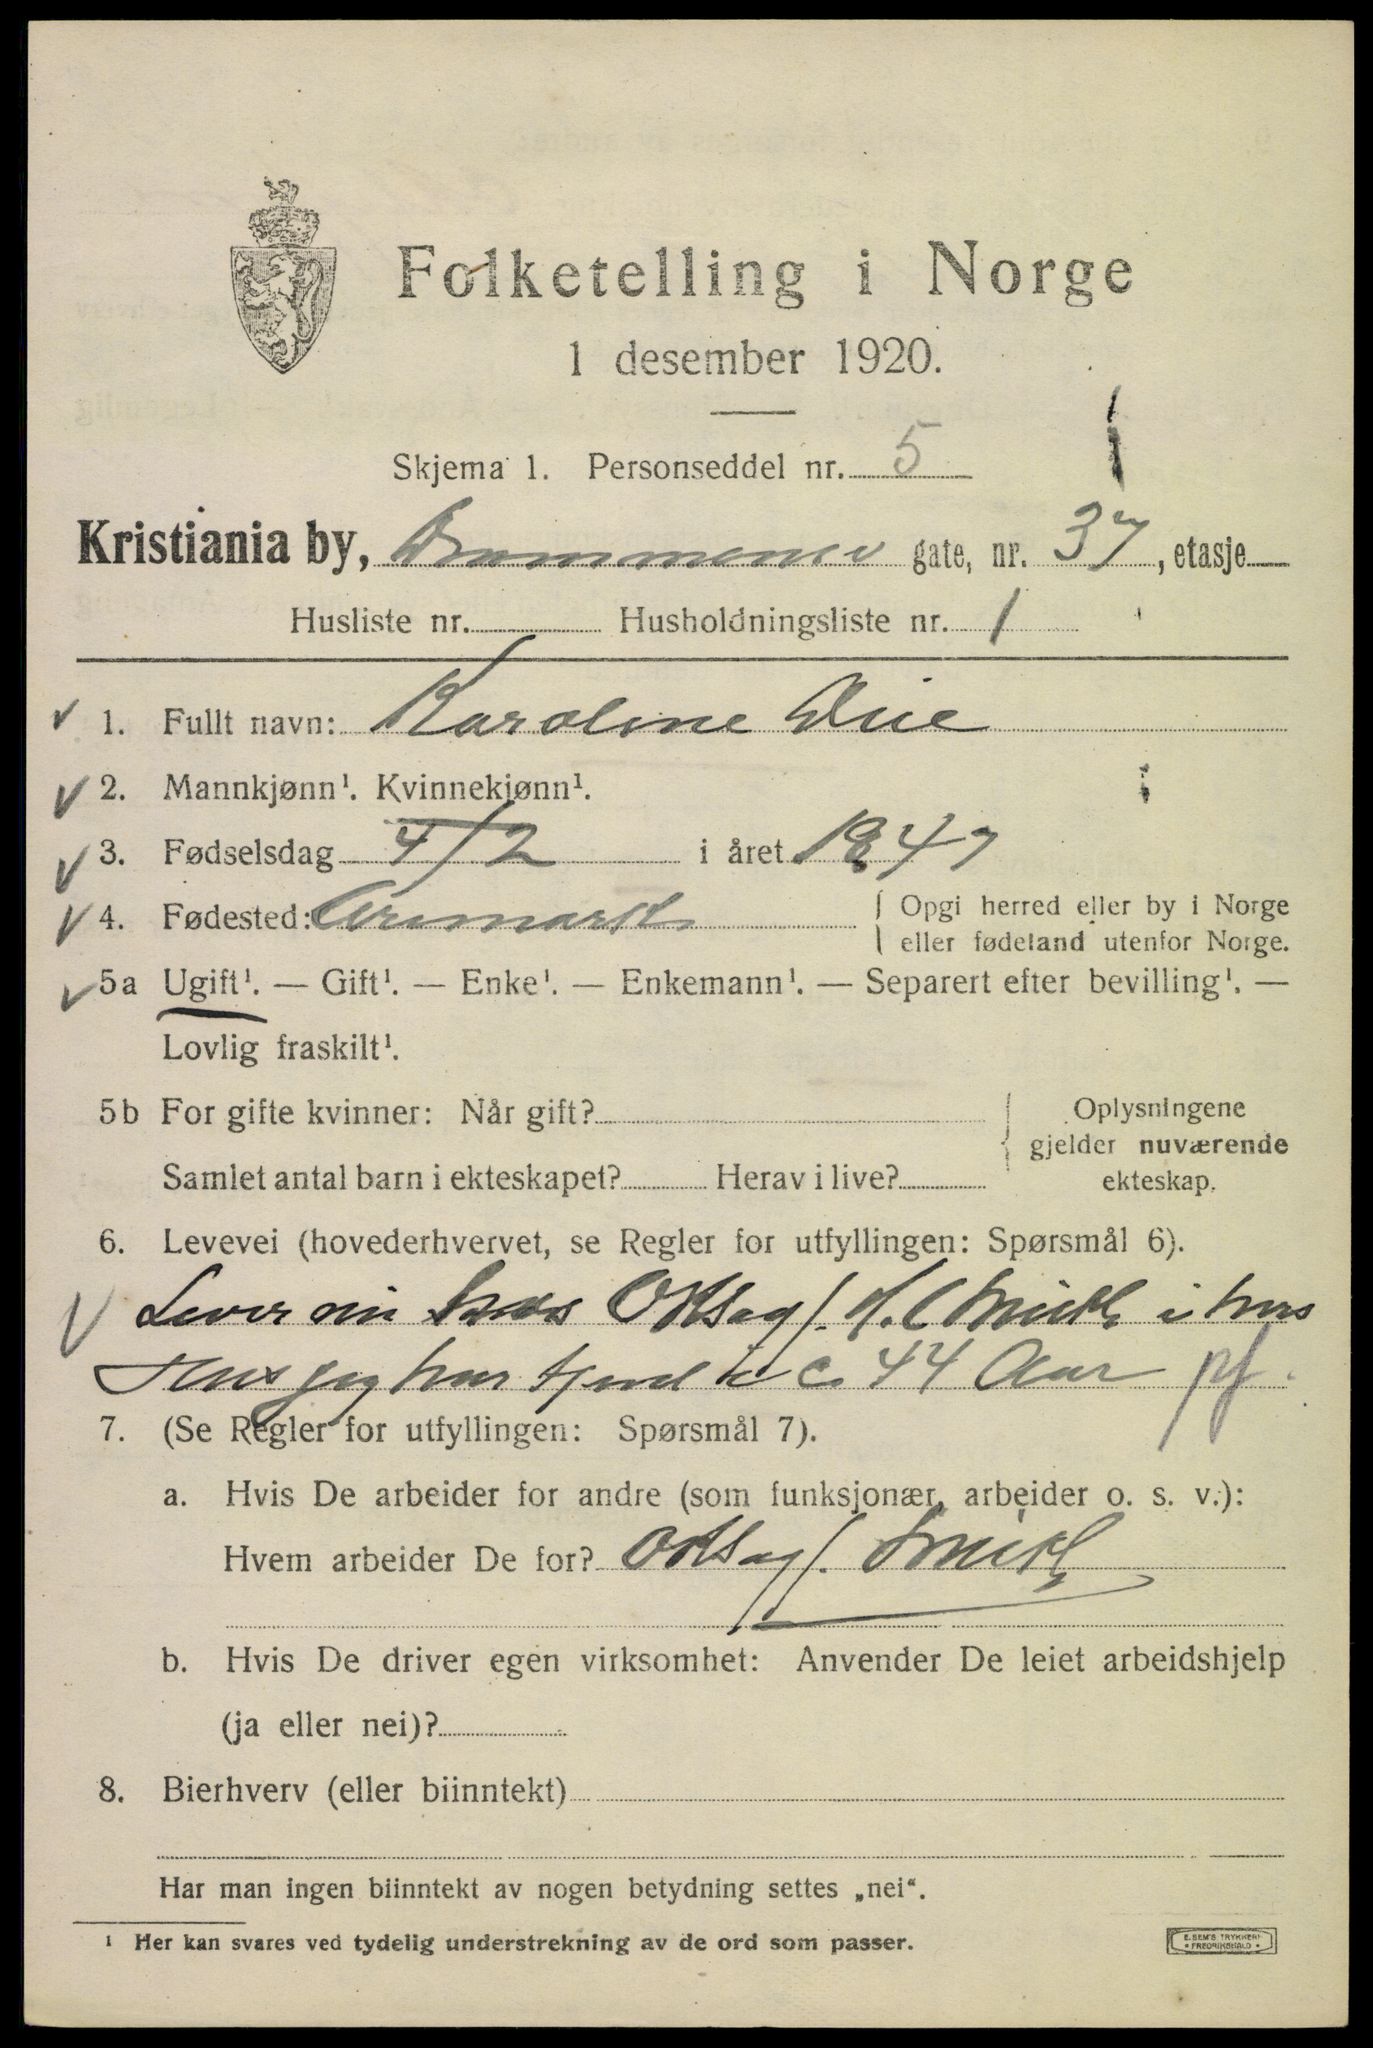 Folketelling i Norge
1 desember 1920.
Skjema 1. Personseddel nr. 5
Kristiania by, Drammensv gate, nr. 37, etasje
Husliste nr. Husholdningsliste nr. 1
1. Fullt navn: Karoline
2. Mannkjønn¹. Kvinnekjønn¹.
3. Fødselsdag 4/2 i året 1847
4. Fødested: Aremark { Opgi herred eller by i Norge
eller fødeland utenfor Norge.
5a Ugift¹. — Gift¹. — Enke¹. — Enkemann¹. — Separert efter bevilling¹. —
Lovlig fraskilt¹.
5b For gifte kvinner: Når gift? Oplysningene
gjelder nuværende
Samlet antal barn i ekteskapet? Herav i live? ekteskap.
6. Levevei (hovederhvervet, se Regler for utfyllingen: Spørsmål 6).
Lever hos i hvis
Hus jeg har tjent i c. 44 Aar pf.
7. (Se Regler for utfyllingen: Spørsmål 7).
a. Hvis De arbeider for andre (som funksjonær, arbeider o. s. v.):
Hvem arbeider De for? Smith
b. Hvis De driver egen virksomhet: Anvender De leiet arbeidshjelp
(ja eller nei)?
8. Bierhverv (eller biinntekt)
Har man ingen biinntekt av nogen betydning settes „nei“.
¹ Her kan svares ved tydelig understrekning av de ord som passer.
E. SEM'S TRYKKERI
• FREDRIKSHALD •